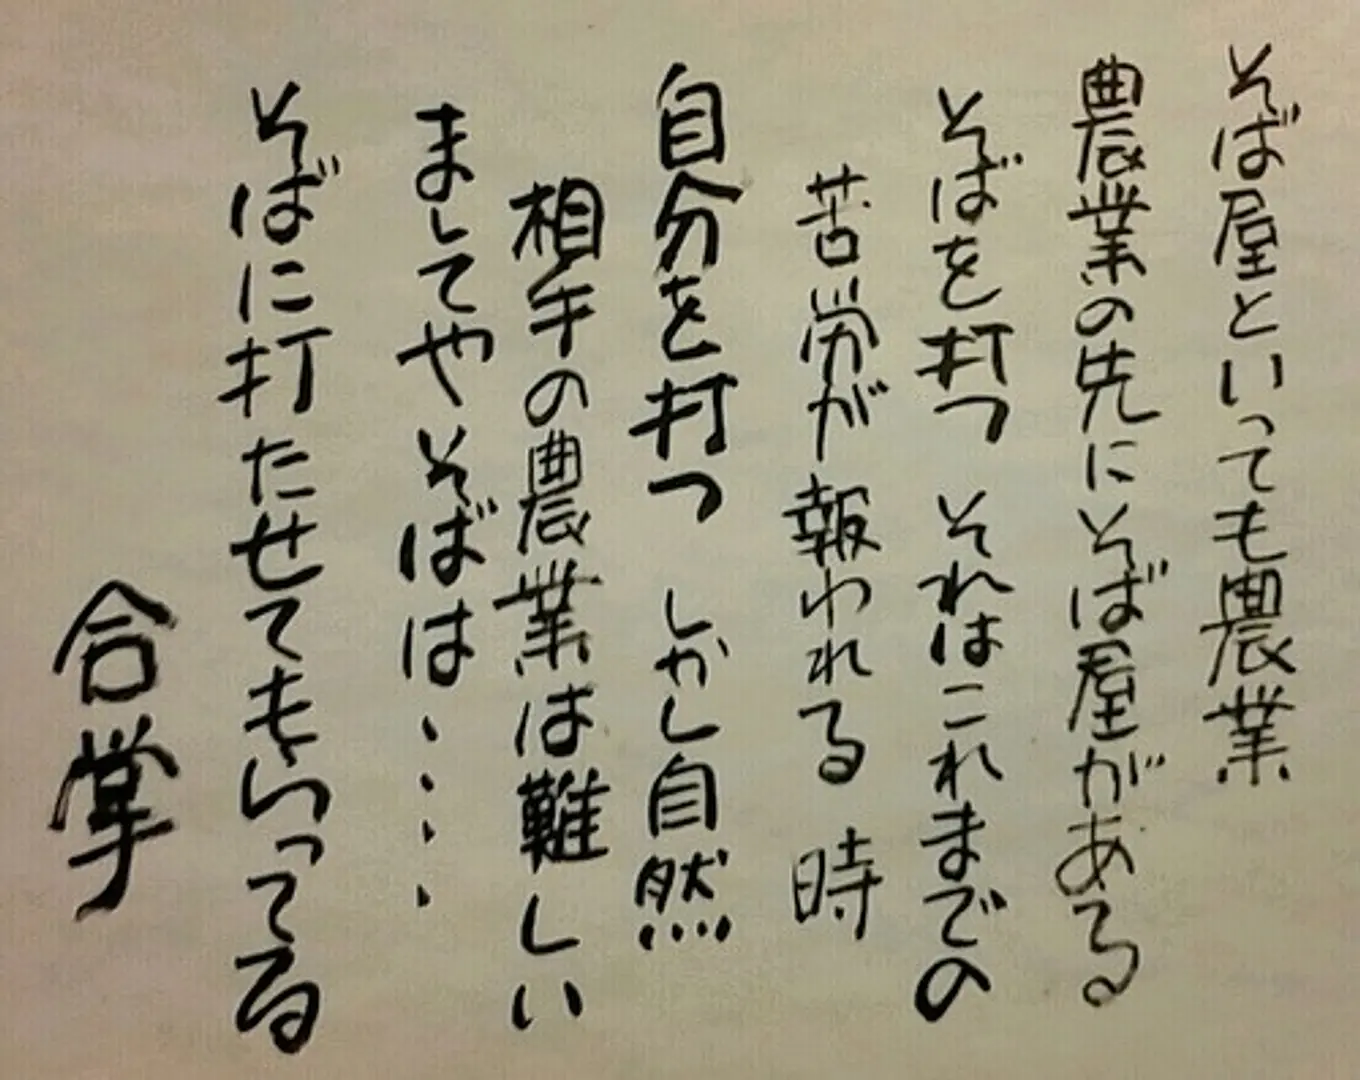 そば屋といっても農業
農業の先にそば屋がある
そばを打つ それはこれまでの
苦労が報われる 時
自分を打つ しかし自然
相手の農業は難しい
ましてや そばは・・・・
そばに打たせてもらってる
合掌